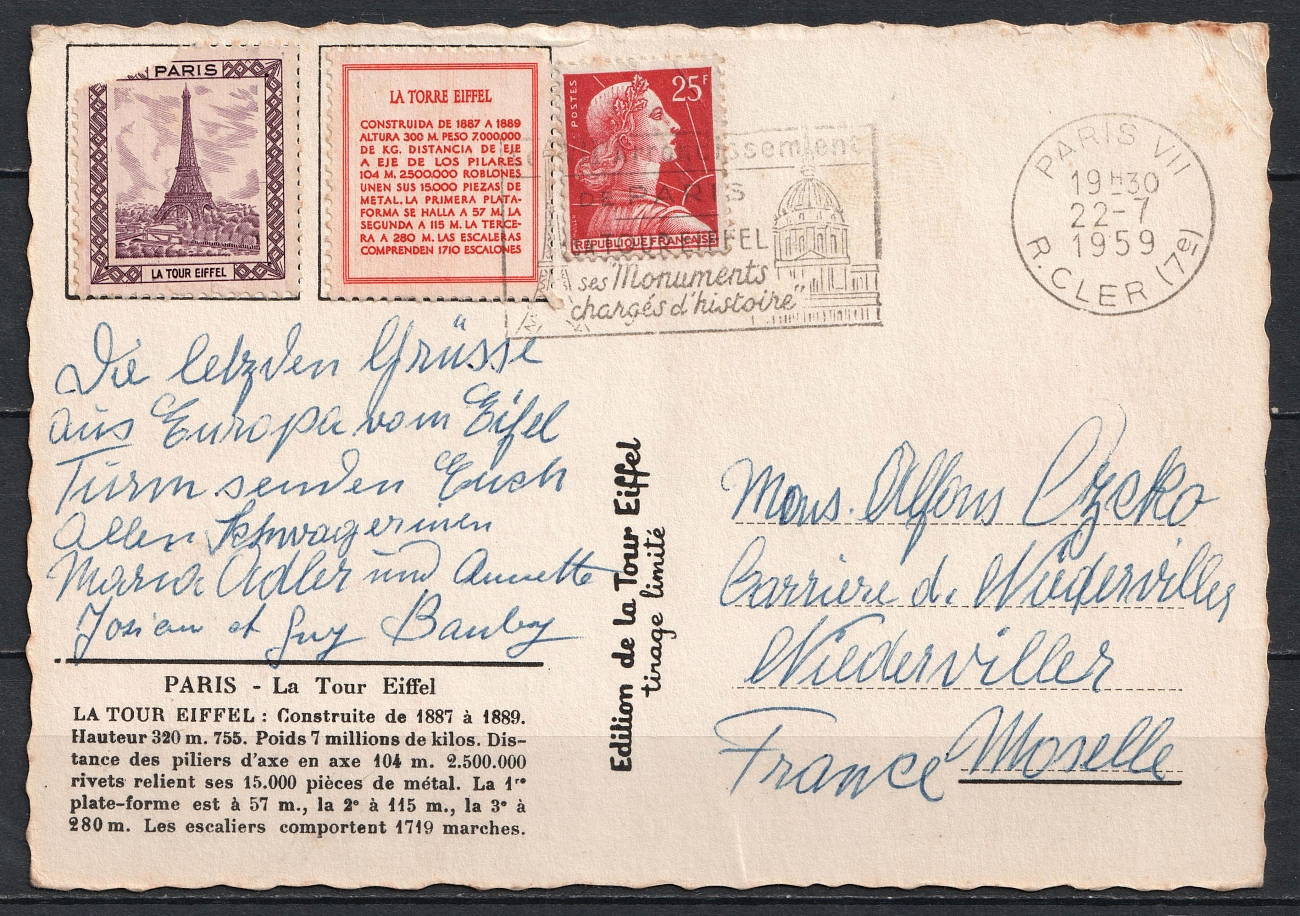 PARIS
LA TOUR EIFFEL
LA TORRE EIFFEL
CONSTRUIDA DE 1887 A 1889
ALTURA 300 M. PESO 7.000.000
DE KG. DISTANCIA DE EJE
A EJE DE LOS PILARES
104 M. 2.500.000 ROBLONES
UNEN SUS 15.000 PIEZAS DE
METAL. LA PRIMERA PLATA-
FORMA SE HALLA A 57 M. LA
SEGUNDA A 115 M. LA TERCE-
RA A 280 M. LAS ESCALERAS
COMPRENDEN 1710 ESCALONES
POSTES
25F
REPUBLIQUE FRANÇAISE
arrondissement
DE PARIS
EIFFEL
ses Monuments
chargés d'histoire"
PARIS VII
19H30
22-7
1959
R. CLER (7e)
Die letzden Grüsse
aus Europa vom Eifel
Turm senden Euch
allen Schwagerinen
Maria Adler und Annette
et Guy
PARIS - La Tour Eiffel
LA TOUR EIFFEL : Construite de 1887 à 1889.
Hauteur 320 m. 755. Poids 7 millions de kilos. Dis-
tance des piliers d'axe en axe 104 m. 2.500.000
rivets relient ses 15.000 pièces de métal. La 1re
plate-forme est à 57 m., la 2e à 115 m., la 3e à
280 m. Les escaliers comportent 1719 marches.
Edition de la Tour Eiffel
tirage limité
Mons. Alfons
Carriere de Niederviller
Niederviller
France Moselle